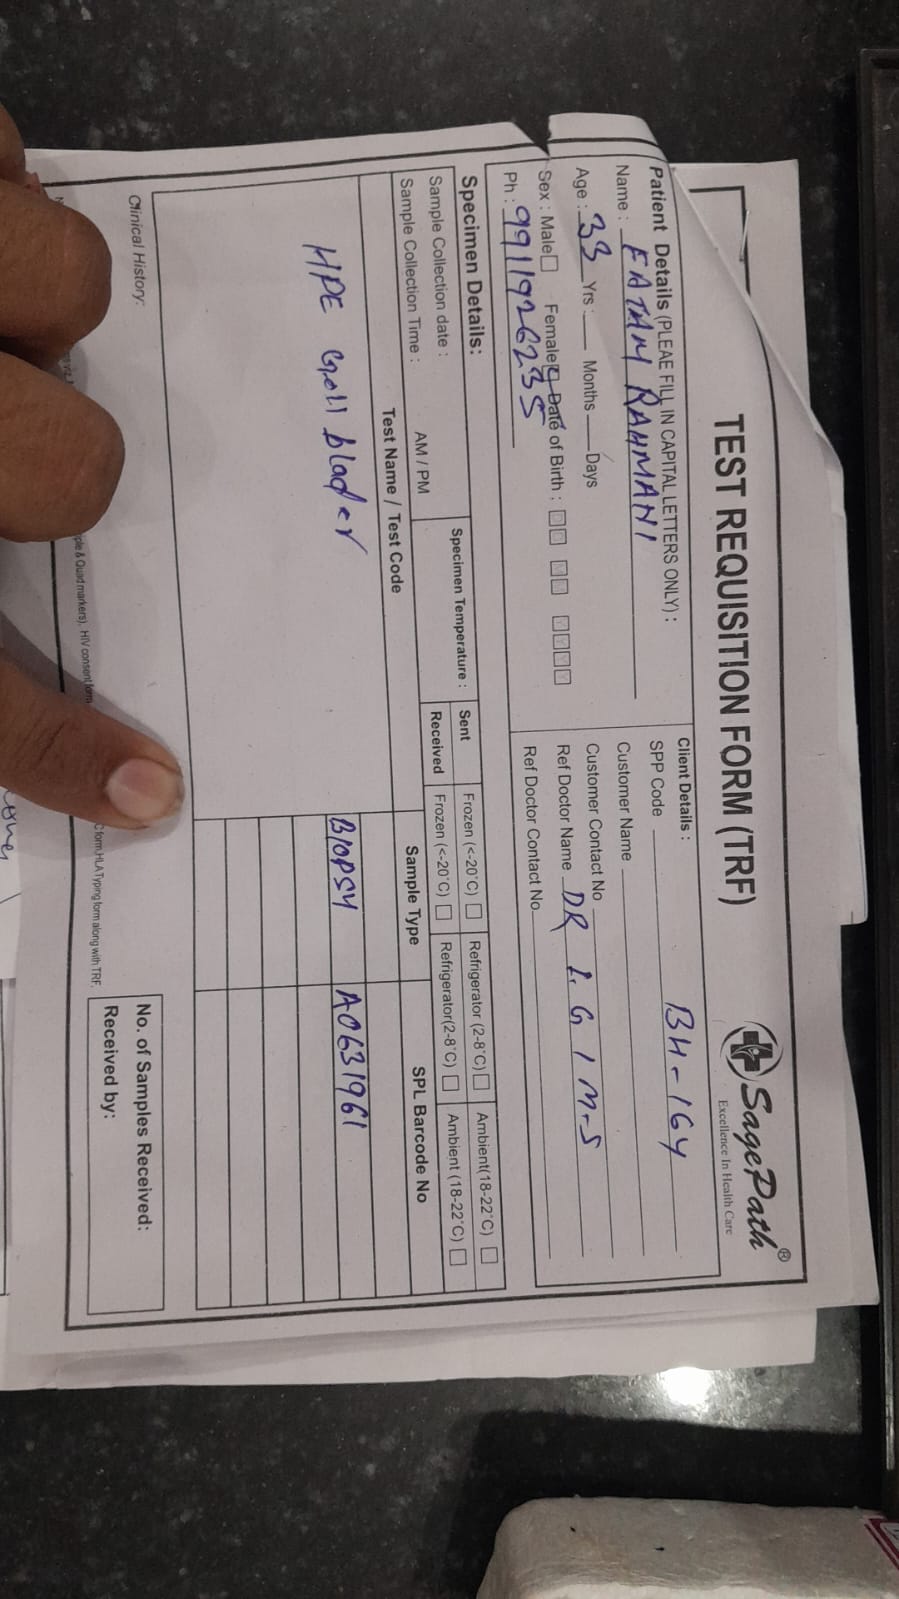 SagePath®
Excellence In Health Care
TEST REQUISITION FORM (TRF)
Patient Details (PLEAE FILL IN CAPITAL LETTERS ONLY) :
Name : FATAM RAHMANI
Age : 33 Yrs : Months Days
Sex : Male Female Date of Birth :
Ph : 9911926235
Client Details :
SPP Code BH-164
Customer Name
Customer Contact No
Ref Doctor Name DR I.G I M-S
Ref Doctor Contact No
Specimen Details:
Sample Collection date :
Sample Collection Time : AM / PM
Specimen Temperature :
Sent Frozen (<-20°C) Refrigerator (2-8°C) Ambient(18-22°C)
Received Frozen (<-20°C) Refrigerator(2-8°C) Ambient (18-22°C)
Test Name / Test Code Sample Type SPL Barcode No
HPE Gall blader Biopsy A0631961
Clinical History:
No. of Samples Received:
Received by:
ple & Quad markers), HIV consent form
C form, HLA Typing form along with TRF.